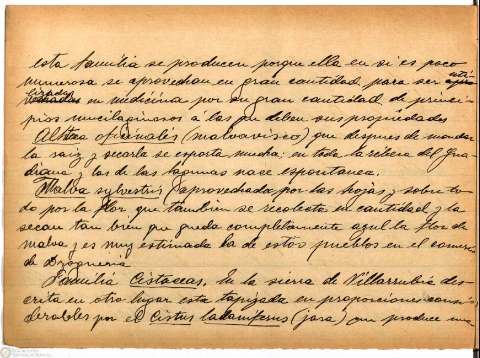 esta familia se producen porque ella en si es poco
numerosa se aprovechan en gran cantidad para ser uti
lizadas en medicina por su gran cantidad de princi
pios mucilaginosos a los que deben sus propiedades
Altea oficinalis (malvavisco) que despues de mondar
la raiz y secarla se esporta mucha; en toda la ribera del Gua
diana y las de las lagunas nace espontanea.
Malva sylvestris aprovechada por las hojas y sobre to
do por la flor que tambien se recolesta en cantidad y la
secan tan bien que queda completamente azul la flor de
malva y es muy estimada la de estos pueblos en el comercio
de Drogueria
Familia Cistaceas. En la sierra de Villarrubia des
crita en otro lugar esta tapizada en proporciones consi
derables por el Cistus ladaniferus (jara) que produce una